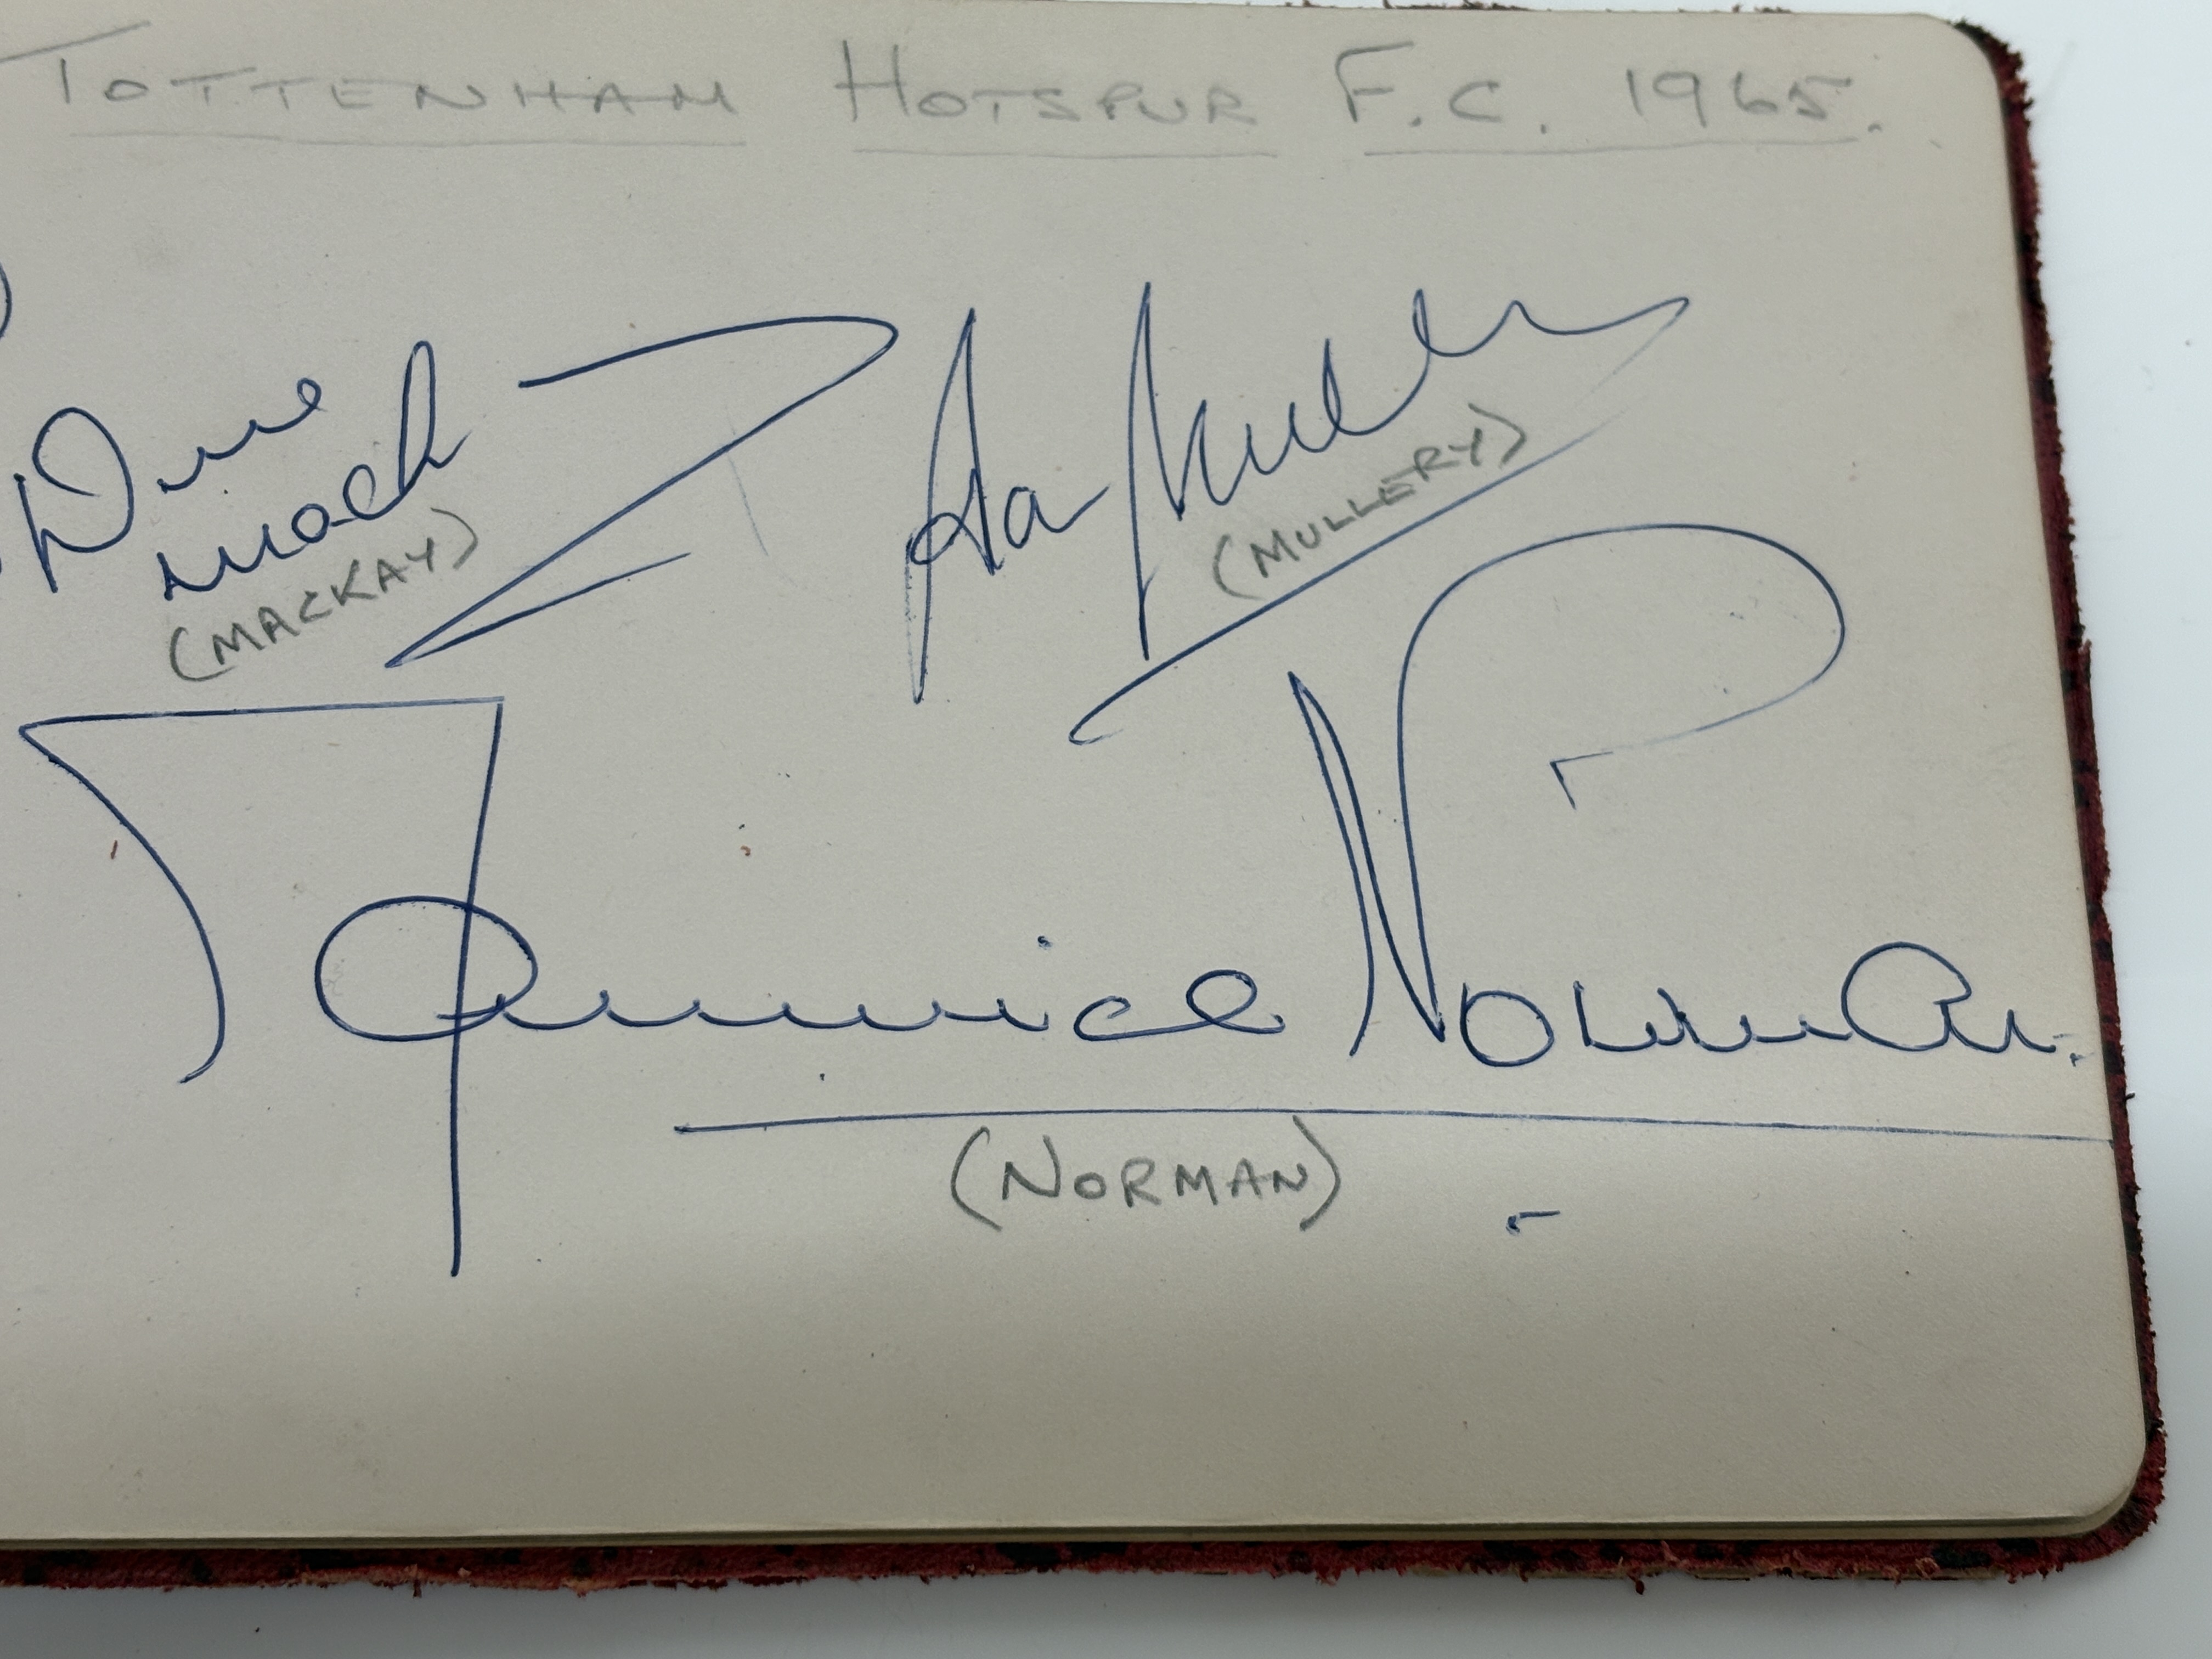 TOTTENHAM HOTSPUR F.C. 1965.
Dave
Mack
(MACKAY)
Alan Mullery
(MULLERY)
Maurice Norman.
(NORMAN)